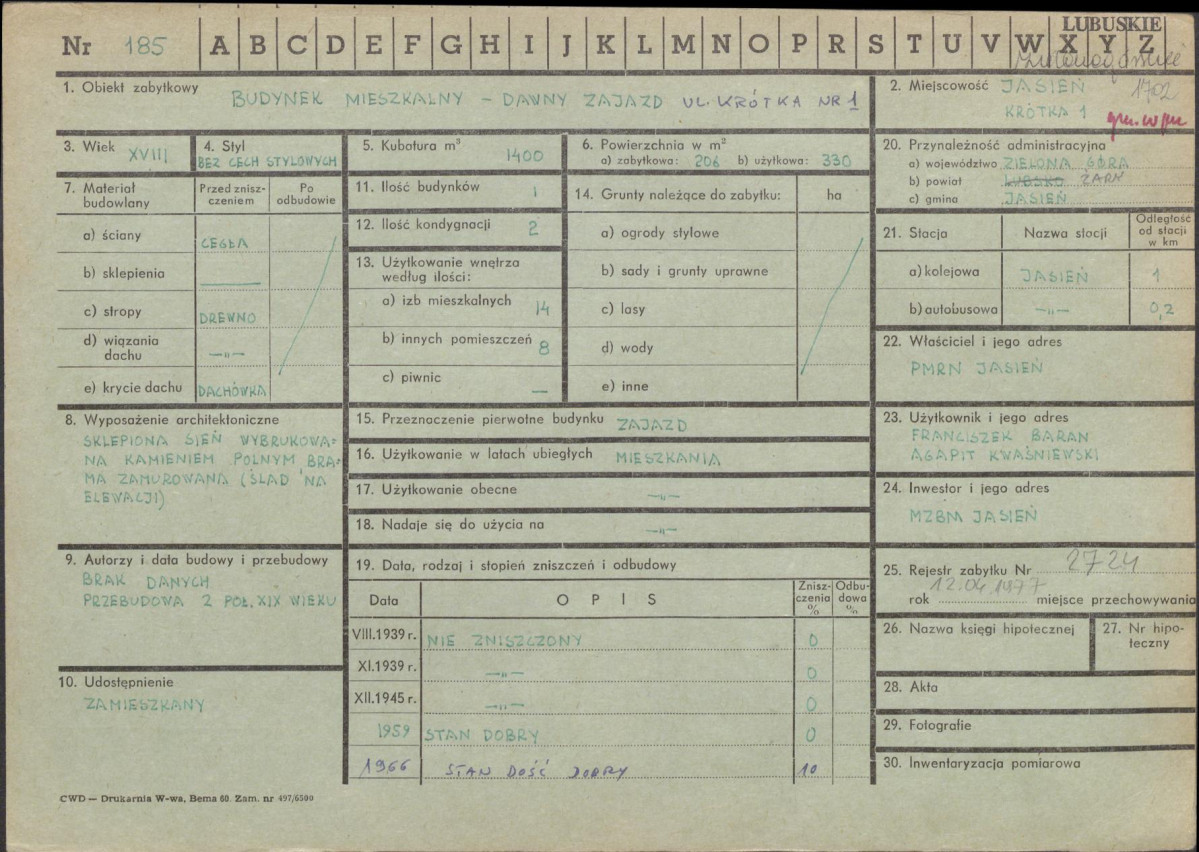 LUBUSKIE
Nr 185 A B C D E F G H I J K L M N O P R S T U V W X Y Z
1. Obiekt zabytkowy
BUDYNEK MIESZKALNY – DAWNY ZAJAZD UL. KRÓTKA NR 1
2. Miejscowość JASIEŃ 1702
KRÓTKA 1
3. Wiek XVIII
4. Styl
BEZ CECH STYLOWYCH
5. Kubatura m³
1400
6. Powierzchnia w m²
a) zabytkowa: 206 b) użytkowa: 330
20. Przynależność administracyjna
a) województwo ZIELONA GÓRA
b) powiat LUBSKO ŻARY
c) gmina JASIEŃ
7. Materiał budowlany
Przed znisz-
czeniem
Po
odbudowie
a) ściany CEGŁA
b) sklepienia —
c) stropy DREWNO
d) wiązania
dachu —„—
e) krycie dachu DACHÓWKA
11. Ilość budynków 1
12. Ilość kondygnacji 2
13. Użytkowanie wnętrza
według ilości:
a) izb mieszkalnych 14
b) innych pomieszczeń 8
c) piwnic —
14. Grunty należące do zabytku: ha
a) ogrody stylowe
b) sady i grunty uprawne
c) lasy
d) wody
e) inne
21. Stacja Nazwa stacji
Odległość
od stacji
w km
a) kolejowa JASIEŃ 1
b) autobusowa —„— 0,2
22. Właściciel i jego adres
PMRN JASIEŃ
8. Wyposażenie architektoniczne
SKLEPIONA SIEŃ WYBRUKOWA-
NA KAMIENIEM POLNYM BRA-
MA ZAMUROWANA (ŚLAD NA
ELEWACJI)
15. Przeznaczenie pierwotne budynku ZAJAZD
16. Użytkowanie w latach ubiegłych MIESZKANIA
17. Użytkowanie obecne —„—
18. Nadaje się do użycia na —„—
23. Użytkownik i jego adres
FRANCISZEK BARAN
AGAPIT KWAŚNIEWSKI
24. Inwestor i jego adres
MZBM JASIEŃ
9. Autorzy i data budowy i przebudowy
BRAK DANYCH
PRZEBUDOWA 2 POŁ. XIX WIEKU
19. Data, rodzaj i stopień zniszczeń i odbudowy
Data OPIS
Znisz-
czenia
%
Odbu-
dowa
%
VIII.1939 r. NIE ZNISZCZONY 0
XI.1939 r. —„— 0
XII.1945 r. —„— 0
1959 STAN DOBRY 0
1966 STAN DOŚĆ DOBRY 10
25. Rejestr zabytku Nr 2724
rok 12.04.1977 miejsce przechowywania
26. Nazwa księgi hipotecznej
27. Nr hipo-
teczny
10. Udostępnienie
ZAMIESZKANY
28. Akta
29. Fotografie
30. Inwentaryzacja pomiarowa
CWD — Drukarnia W-wa, Bema 60. Zam. nr 497/6500